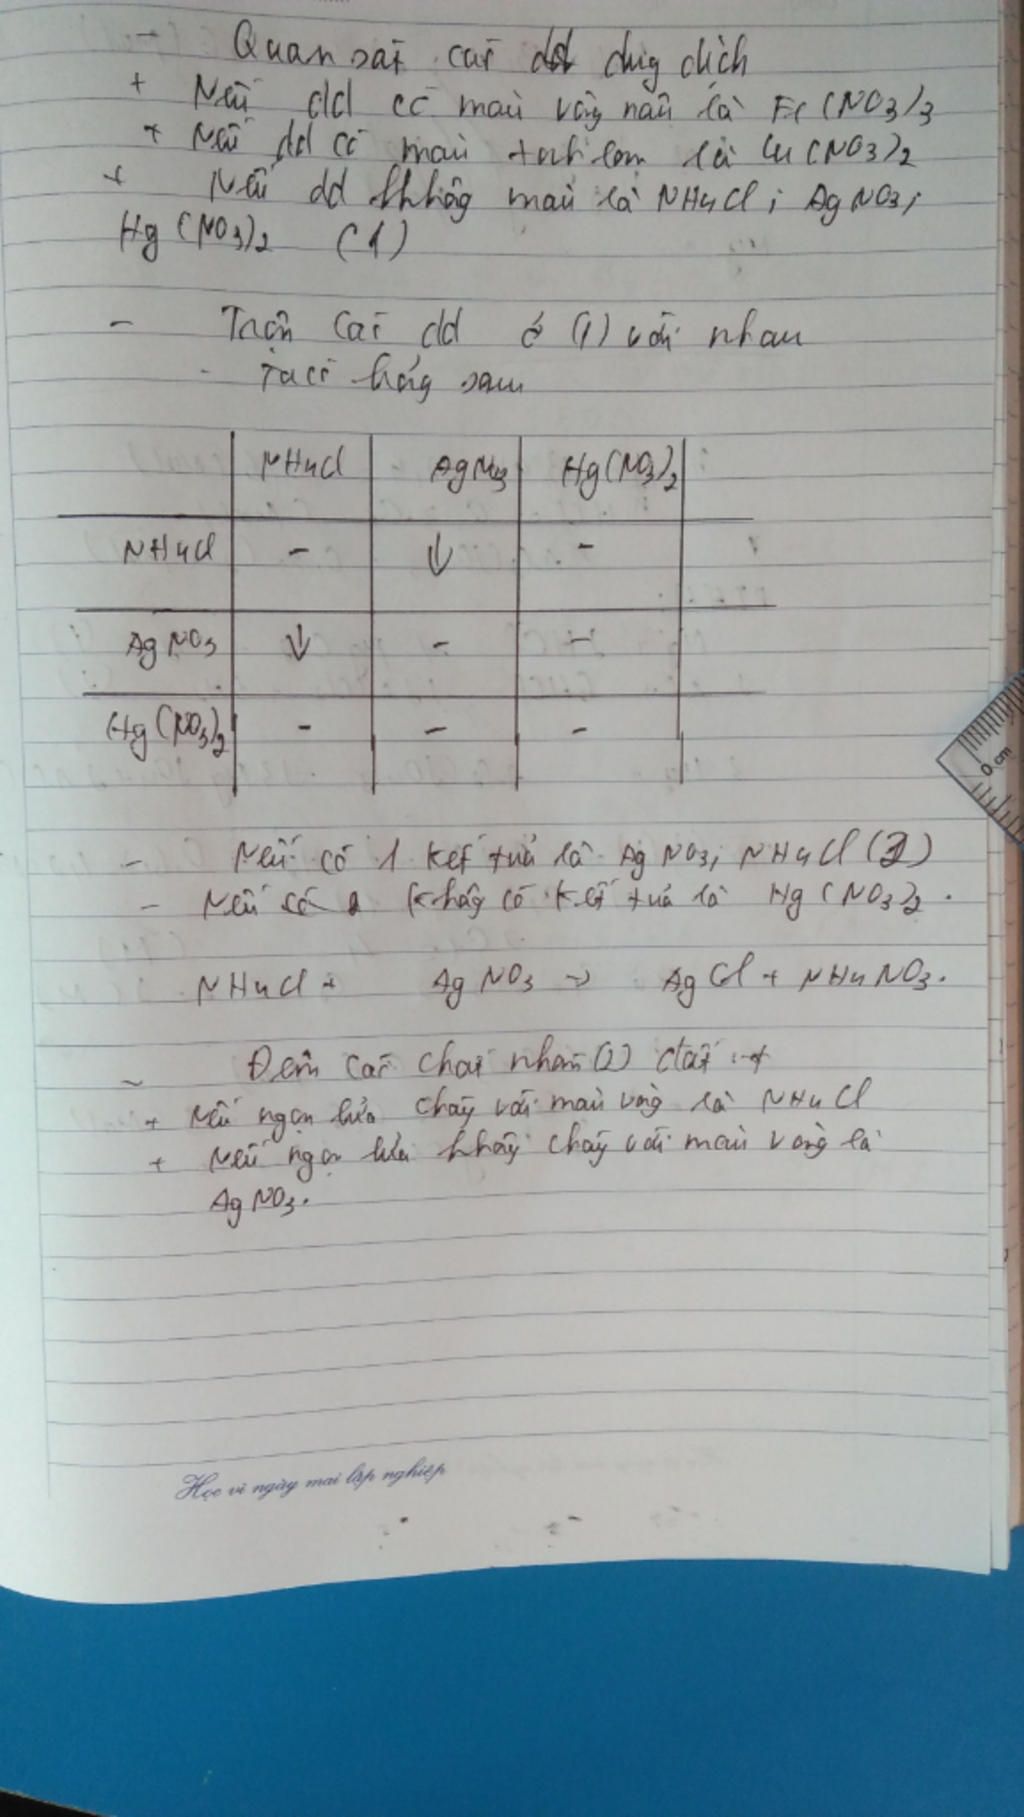 - Quan sát các dd dung dịch
+ Nếu dd có màu vàng nâu là Fe(NO3)3
+ Nếu dd có màu xanh lam là Cu(NO3)2
+ Nếu dd không màu là NH4Cl; AgNO3;
Hg(NO3)2 (1)
- Trộn các dd ở (1) với nhau
- Ta có bảng sau
NH4Cl AgNO3 Hg(NO3)2
NH4Cl - ↓ -
AgNO3 ↓ - -
Hg(NO3)2 - - -
0 cm
- Nếu có 1 kết tủa là AgNO3; NH4Cl (2)
- Nếu không có kết tủa là Hg(NO3)2.
NH4Cl + AgNO3 → AgCl + NH4NO3.
- Đem các chất nhóm (2) đốt
+ Nếu ngọn lửa cháy với màu vàng là NH4Cl
+ Nếu ngọn lửa không cháy với màu vàng là
AgNO3.
Học vì ngày mai lập nghiệp